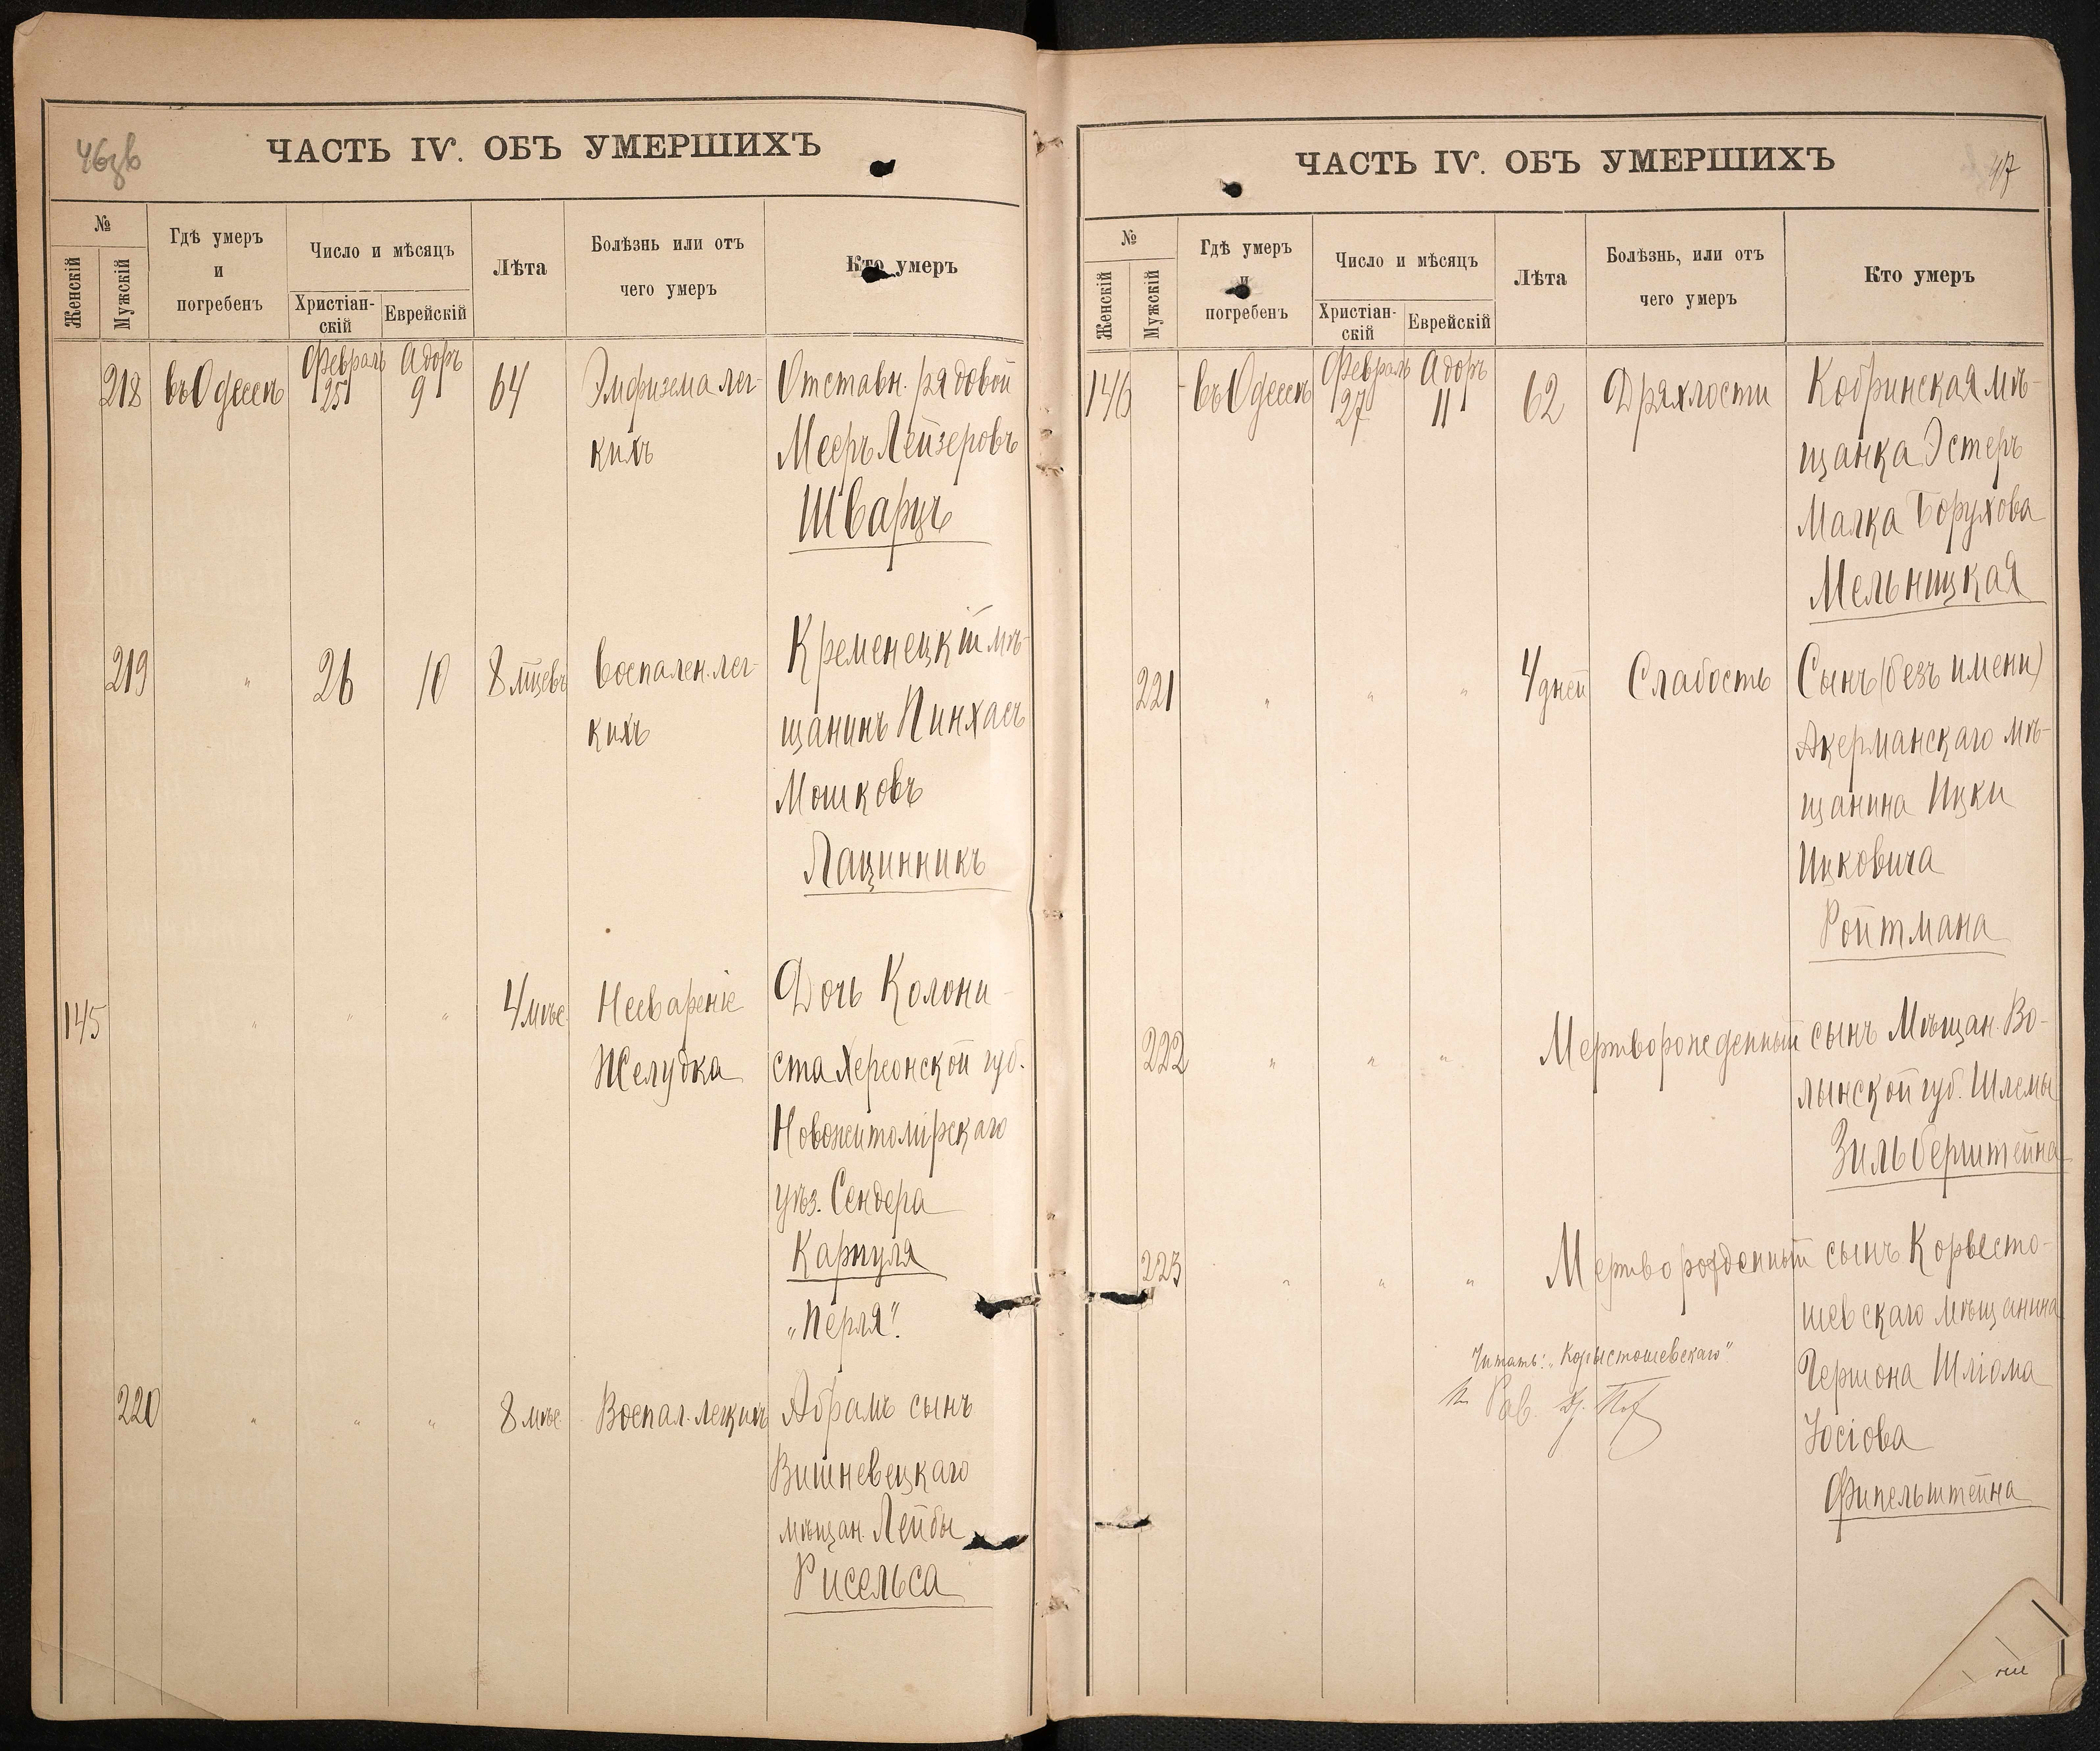 46зв
ЧАСТЬ IV. ОБЪ УМЕРШИХЪ
№
Женскій
Мужскій
Гдѣ умеръ
и
погребенъ
Число и мѣсяцъ
Христіан-
скій
Еврейскій
Лѣта
Болѣзнь или отъ
чего умеръ
Кто умеръ
218 въ Одессѣ Февраль 25 Адоръ 9 64 Эмфизема лег- Отставн. рядовой
кихъ Мееръ Лейзеровъ
Шварцъ
219 " 26 10 8 мцевъ Воспален. лег- Кременецкій мѣ-
кихъ щанинъ Пинхасъ
Мошковъ
Лацинникъ
145 " " " 4 мѣс. Несвареніе Дочь Колони-
Желудка ста Херсонской губ.
Новожитомірскаго
уѣз. Сендера
Карпуля
„Перля".
220 " " " 8 мѣс. Воспал. легкихъ Абрамъ сынъ
Вишневецкаго
мѣщан. Лейбы
Рисельса
47
ЧАСТЬ IV. ОБЪ УМЕРШИХЪ
№
Женскій
Мужскій
Гдѣ умеръ
и
погребенъ
Число и мѣсяцъ
Христіан-
скій
Еврейскій
Лѣта
Болѣзнь, или отъ
чего умеръ
Кто умеръ
146 въ Одессѣ Февраль 27 Адоръ 11 62 Дряхлости Кобринская мѣ-
щанка Эстеръ
Малка Борухова
Мельницкая
221 " " " 4 дней Слабость Сынъ (безъ имени)
Акерманскаго мѣ-
щанина Ицки
Ицковича
Ройтмана
222 " " " Мертворожденный сынъ Мѣщан. Во-
лынской губ. Шлемы
Зильберштейна
223 " " " Мертворожденный сынъ Корвесто-
шевскаго мѣщанина
Гершона Шліома
Іосіова
Фипельштейна
Читать: „Коростошевскаго".
Рав.